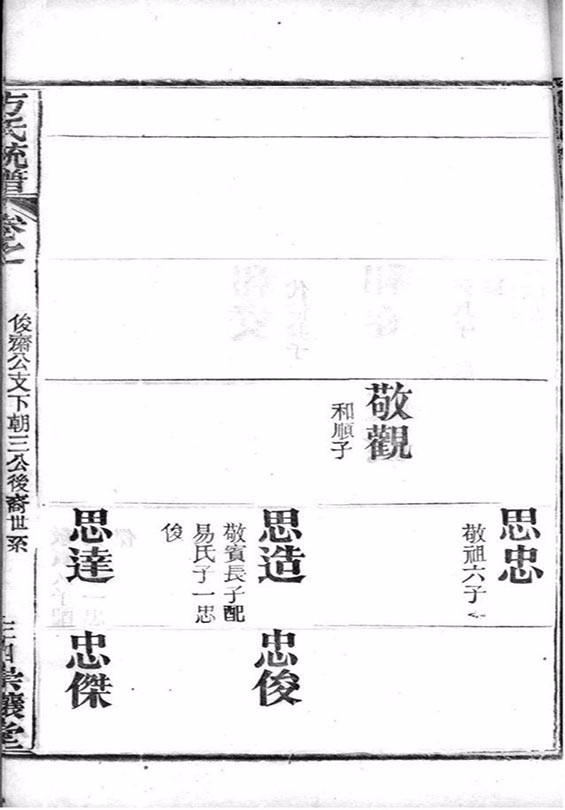 敬觀
和順子
思忠
敬祖六子
思造
敬賓長子配
易氏子一忠
俊
思達
忠俊
忠傑
方氏統譜
卷之
俊齋公支下朝三公後裔世系